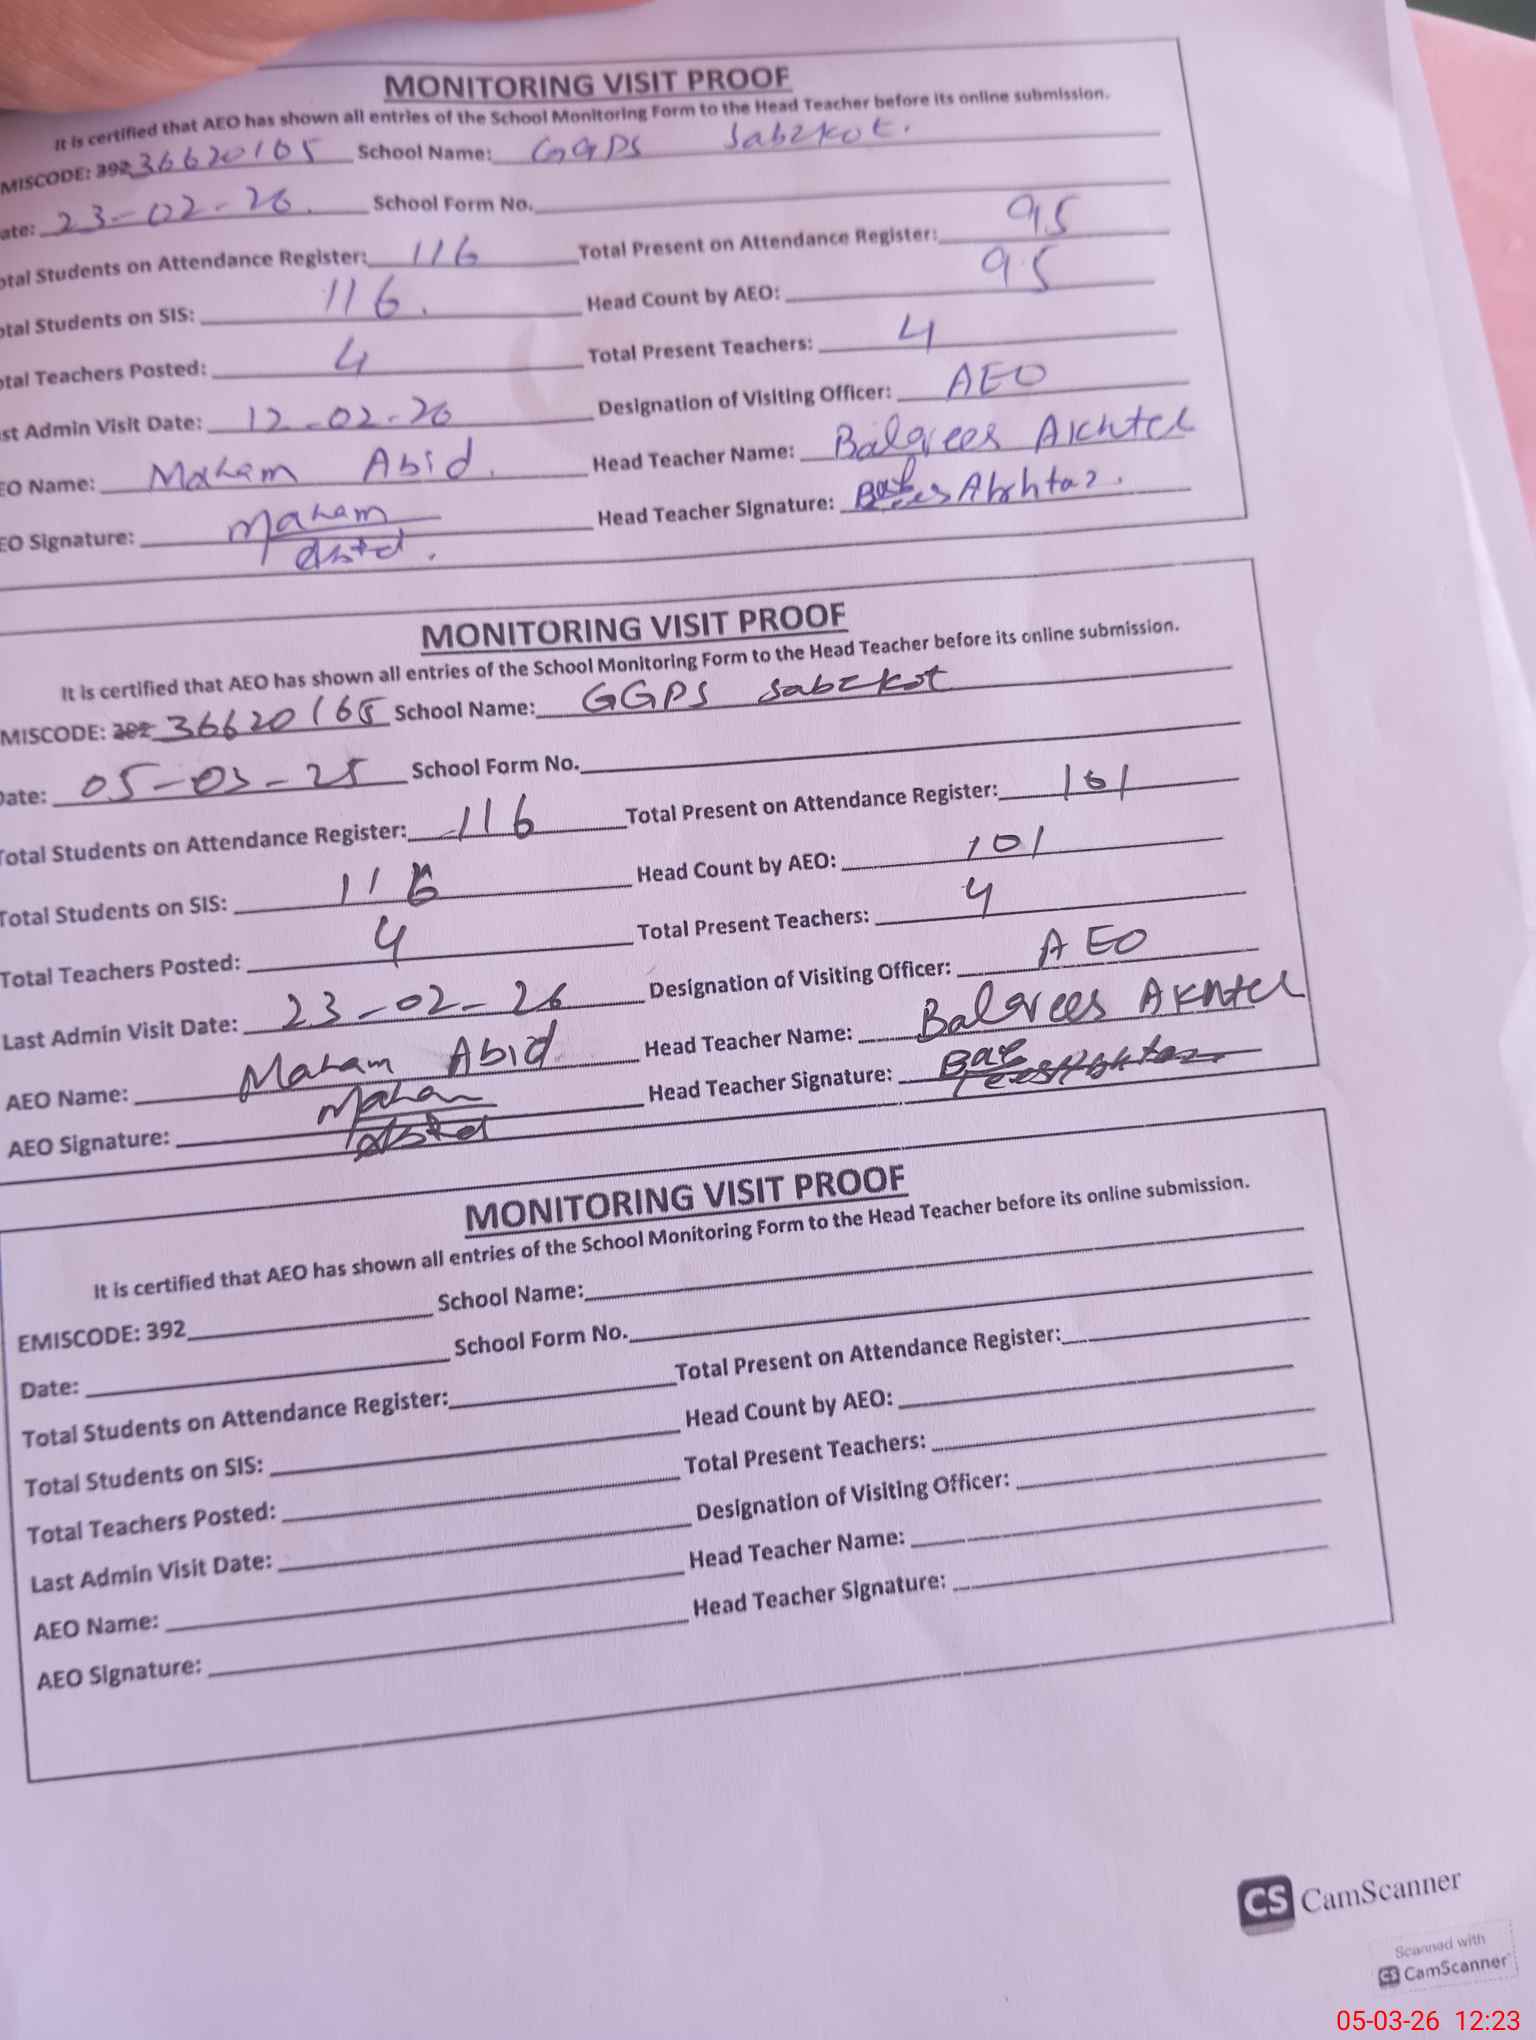 MONITORING VISIT PROOF
It is certified that AEO has shown all entries of the School Monitoring Form to the Head Teacher before its online submission.
MISCODE: 392 36620165 School Name: GGPS Sabzkot.
ate: 23-02-26. School Form No.
otal Students on Attendance Register: 116 Total Present on Attendance Register: 95
otal Students on SIS: 116. Head Count by AEO: 95
otal Teachers Posted: 4 Total Present Teachers: 4
st Admin Visit Date: 12-02-26 Designation of Visiting Officer: AEO
EO Name: Maham Abid. Head Teacher Name: Balqees Akhter
EO Signature: Maham Head Teacher Signature:
Abid.
MONITORING VISIT PROOF
It is certified that AEO has shown all entries of the School Monitoring Form to the Head Teacher before its online submission.
MISCODE: 392 36620165 School Name: GGPS Sabzkot
Date: 05-03-25 School Form No.
Total Students on Attendance Register: 116 Total Present on Attendance Register: 101
Total Students on SIS: 116 Head Count by AEO: 101
Total Teachers Posted: 4 Total Present Teachers: 4
Last Admin Visit Date: 23-02-26 Designation of Visiting Officer: AEO
AEO Name: Maham Abid Head Teacher Name: Balqees Akhter
AEO Signature: Maham Head Teacher Signature:
Abid
MONITORING VISIT PROOF
It is certified that AEO has shown all entries of the School Monitoring Form to the Head Teacher before its online submission.
EMISCODE: 392 School Name:
Date: School Form No.
Total Students on Attendance Register: Total Present on Attendance Register:
Total Students on SIS: Head Count by AEO:
Total Teachers Posted: Total Present Teachers:
Last Admin Visit Date: Designation of Visiting Officer:
AEO Name: Head Teacher Name:
AEO Signature: Head Teacher Signature:
CS CamScanner
Scanned with
CS CamScanner
05-03-26 12:23